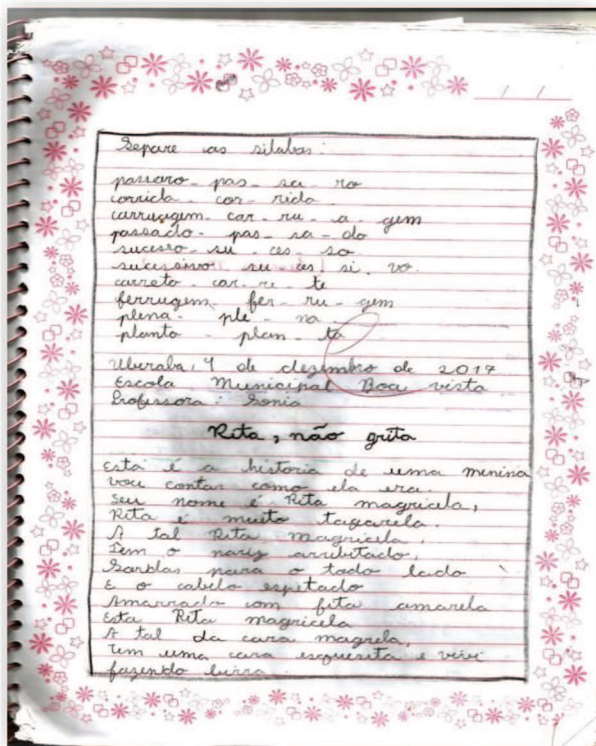 Separe as silabas:
passaro - pas - sa - ro
corrida - cor - rida
carrugem - car - ru - a - gem
passado - pas - sa - do
sucesso - su - ces - so
sucessivo - su - ces - si - vo
carreto - car - re - te
ferrugem - fer - ru - gem
plena - ple - na
planta - plan - ta
Uberaba, 4 de dezembro de 2017
Escola Municipal Boa vista
Professora: Sonia
Rita, não grita
Está é a historia de uma menina
vou contar como ela era.
Seu nome é Rita magricela,
Rita é muito tagarela.
A tal Rita magricela,
Tem o nariz arrebitado,
Sardas para o todo lado
E o cabelo espetado
Amarrado com fita amarela
Esta Rita magricela
A tal da cara magrela,
Tem uma cara esquesita e vive
fazendo birra.